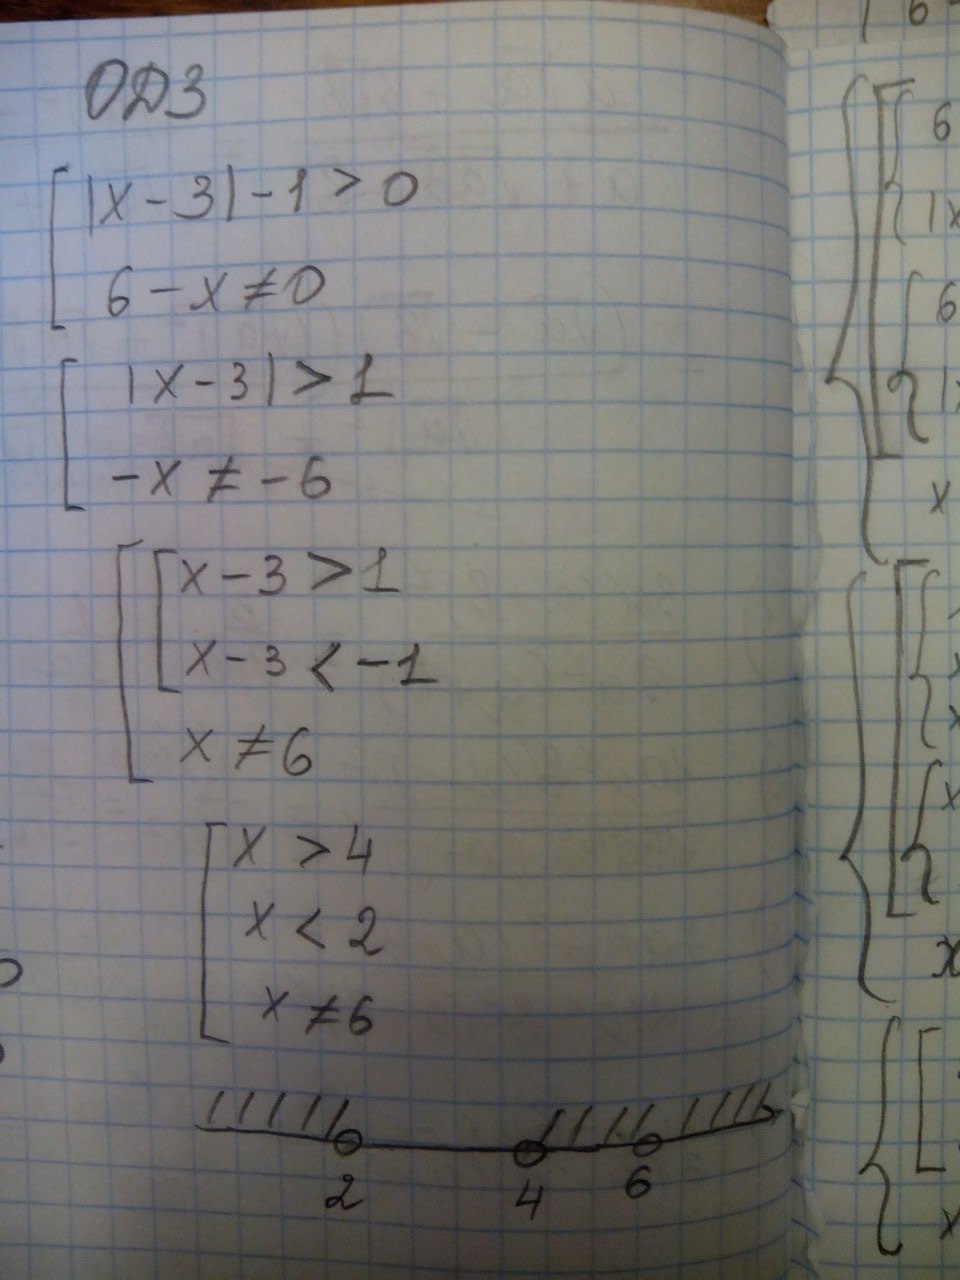 ОДЗ
|x - 3| - 1 > 0
6 - x ≠ 0
|x - 3| > 1
-x ≠ -6
x - 3 > 1
x - 3 < -1
x ≠ 6
x > 4
x < 2
x ≠ 6
2 4 6
6
6
|x
6
|x
x
x
x
x
x
x